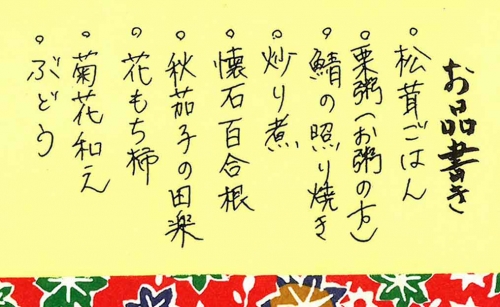 お品書き
○松茸ごはん
○栗粥(お粥の方)
○鯖の照り焼き
○炒り煮
○懐石百合根
○秋茄子の田楽
○花もち柿
○菊花和え
○ぶどう